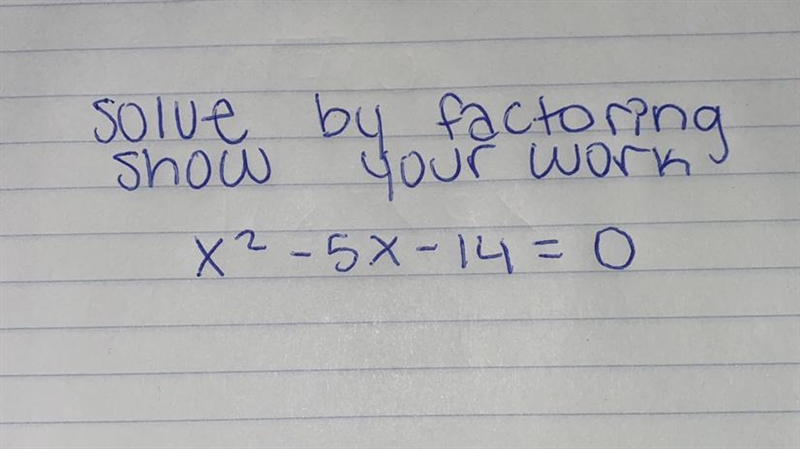 solve by factoring
show your work
x² - 5x - 14 = 0